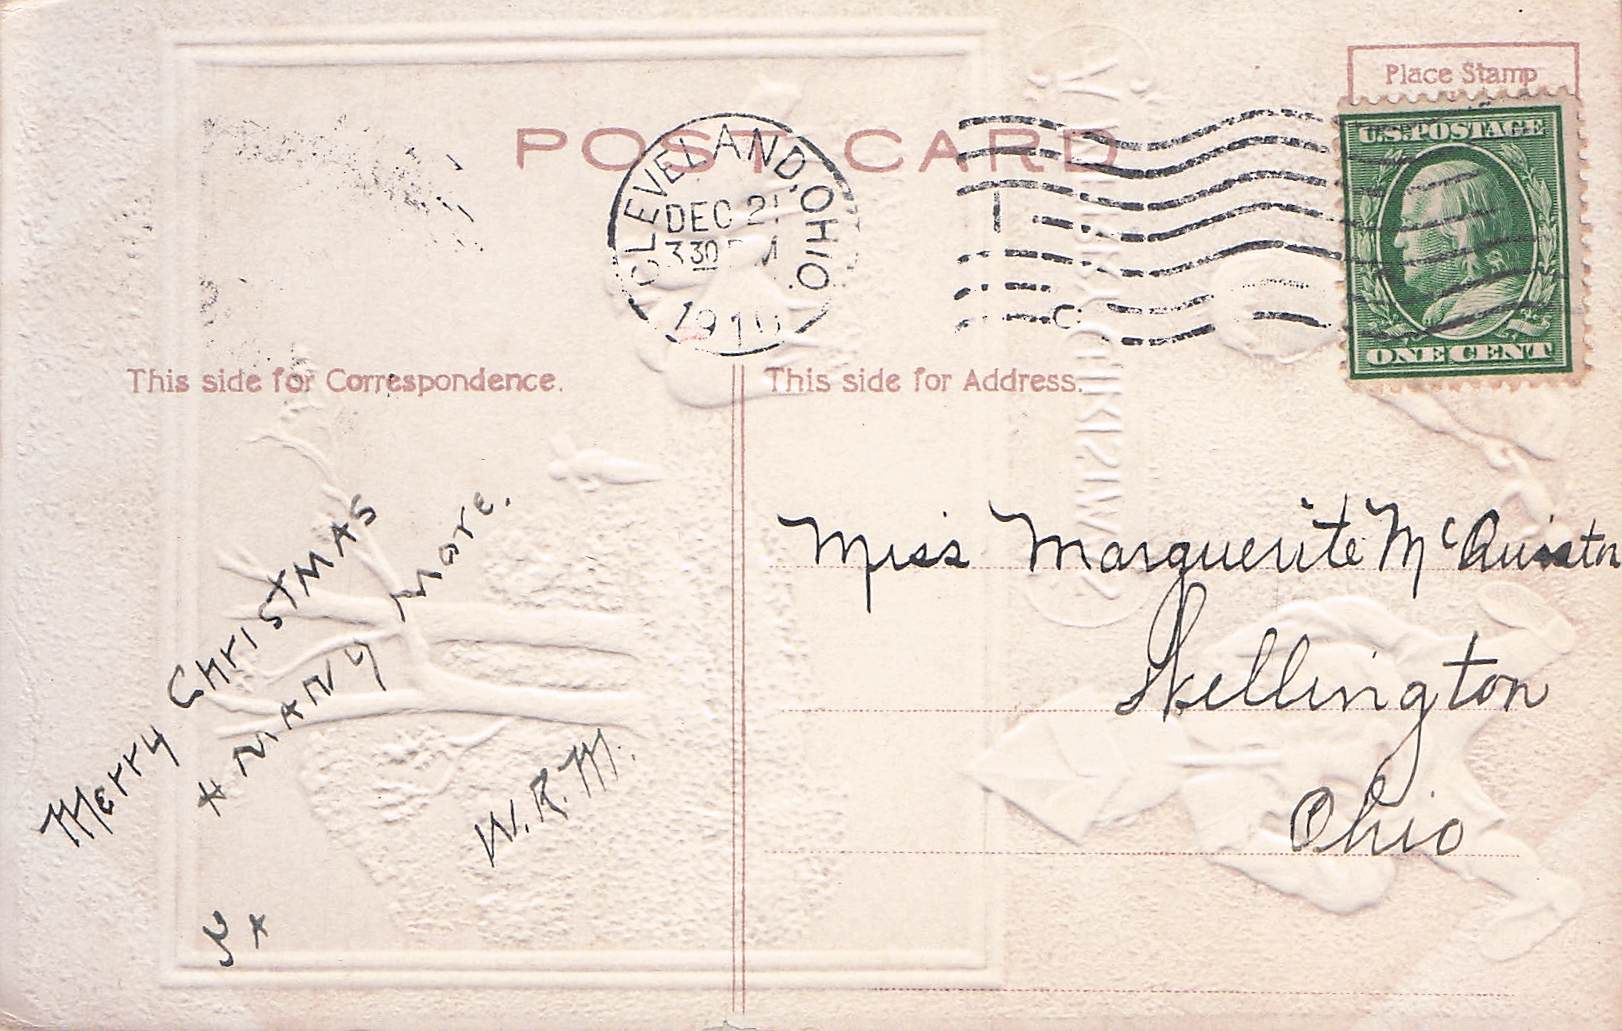 Place Stamp
U.S. POSTAGE
POST CARD
CLEVELAND, OHIO.
DEC 21
3 30 PM
1910
ONE CENT
This side for Correspondence.
This side for Address.
Merry CHrISTMAS
& MANY More.
W.R.M.
Miss Marguerite McQuiston
Wellington
Ohio